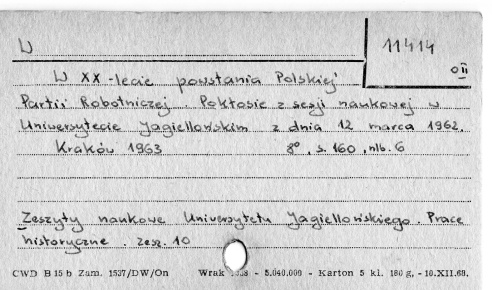 W
11414
OII
W XX-lecie powstania Polskiej
Partii Robotniczej. Pokłosie z sesji naukowej w
Uniwersytecie Jagiellońskim z dnia 12 marca 1962.
Kraków 1963 8°, s. 160, nlb. 6
Zeszyty naukowe Uniwersytetu Jagiellońskiego. Prace
historyczne. zesz. 10
CWD B 15 b Zam. 1537/DW/On Wrak - 5.040.000 - Karton 5 kl. 180 g. - 10.XII.68.